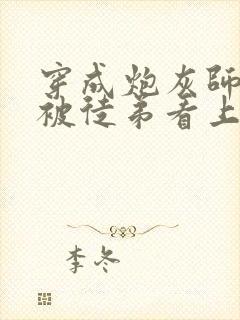 穿成炮灰師
被徒弟看上
李冬